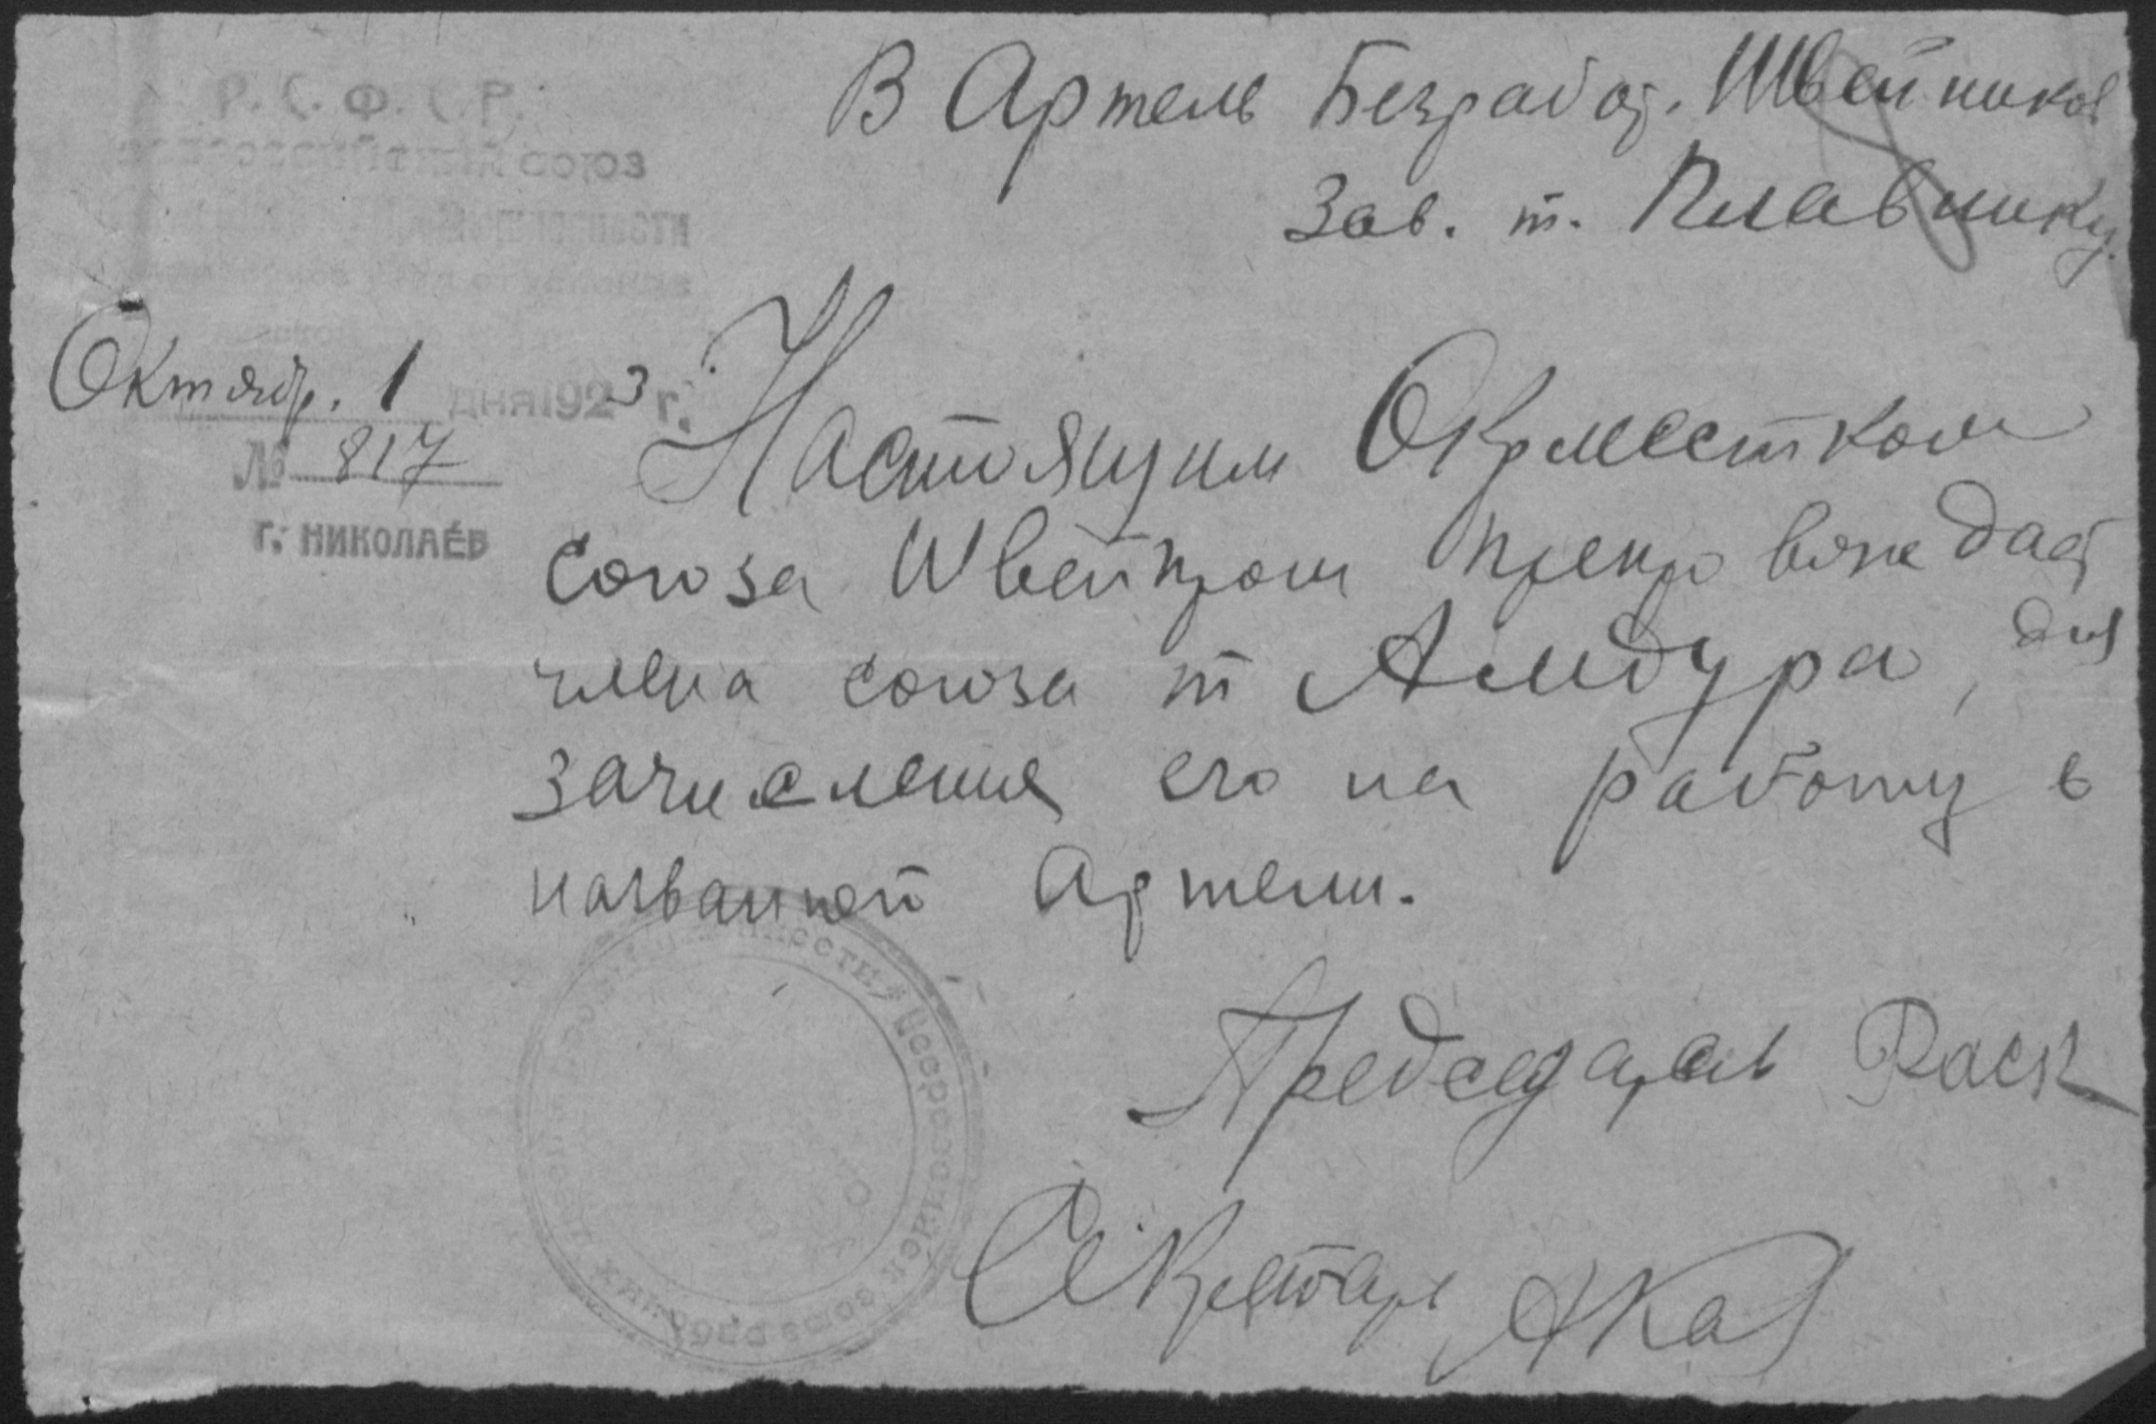 Р. С. Ф. С. Р.
всероссийский союз
Октябр. 1 дня 1923 г.
№ 817
г. николаев
В Артель Безработ. Швейников
Зав. т. Плавнику.
Настоящим Окрместком
союза Швейпром препровождает
члена союза т Амдура, для
зачисления его на работу в
названной Артели.
Председатель
Секретарь